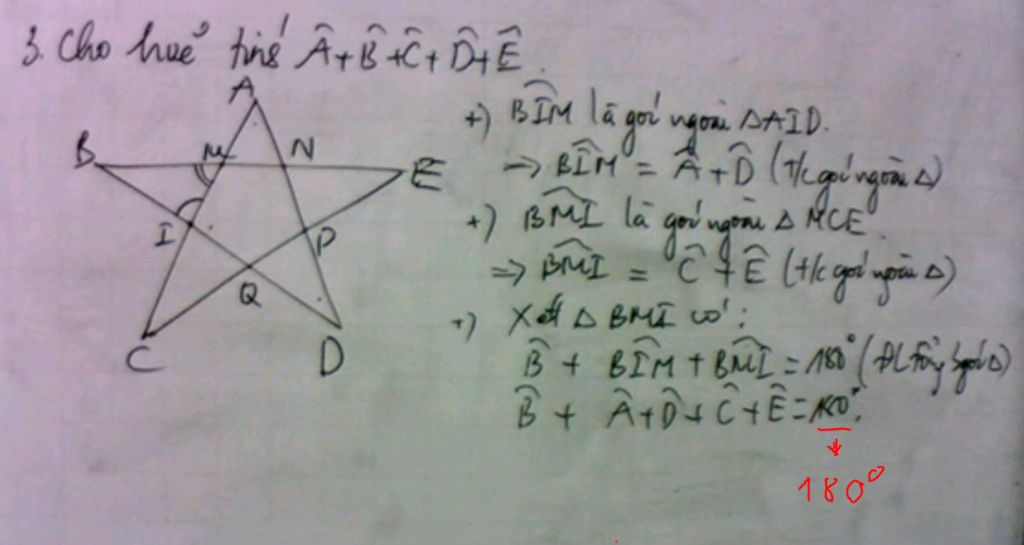 3. Cho hvẽ tính Â+B̂+Ĉ+D̂+Ê.
A
B
M
N
E
I
P
Q
C
D
+) BÎM là góc ngoài ΔAID.
⇒ BÎM = Â+D̂ (T/c góc ngoài Δ)
+) BM̂I là góc ngoài Δ MCE
⇒ BM̂I = Ĉ + Ê (t/c góc ngoài Δ)
+) Xét Δ BMI có:
B̂ + BÎM + BM̂I = 180° (ĐL tổng 3 góc Δ)
B̂ + Â+D̂+Ĉ+Ê = 180°.
180°